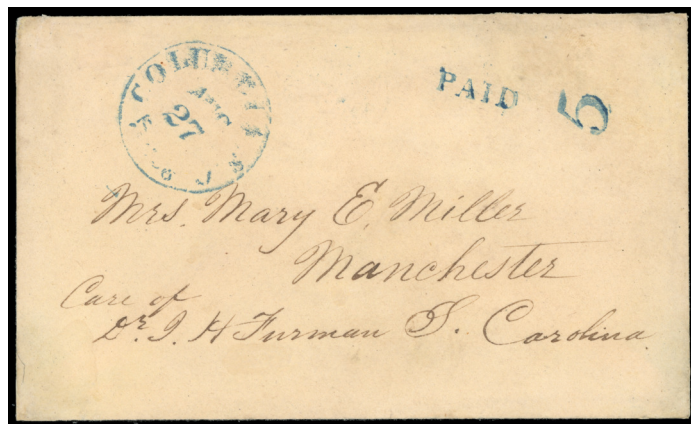 COLUMBIA
AUG
27
PAID 5
Mrs. Mary E. Miller
Manchester
Care of
Dr. J. H Furman S. Carolina.